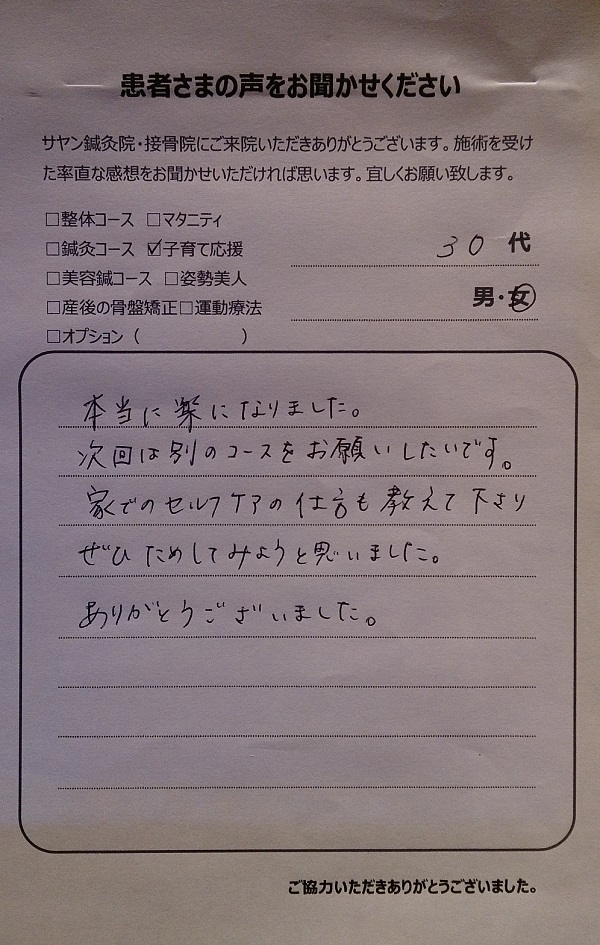 患者さまの声をお聞かせください
サヤン鍼灸院・接骨院にご来院いただきありがとうございます。施術を受け
た率直な感想をお聞かせいただければ思います。宜しくお願い致します。
□整体コース □マタニティ
□鍼灸コース ☑子育て応援
30 代
□美容鍼コース □姿勢美人
男・女
□産後の骨盤矯正□運動療法
□オプション（ ）
本当に楽になりました。
次回は別のコースをお願いしたいです。
家でのセルフケアの仕方も教えて下さり
ぜひためしてみようと思いました。
ありがとうございました。
ご協力いただきありがとうございました。